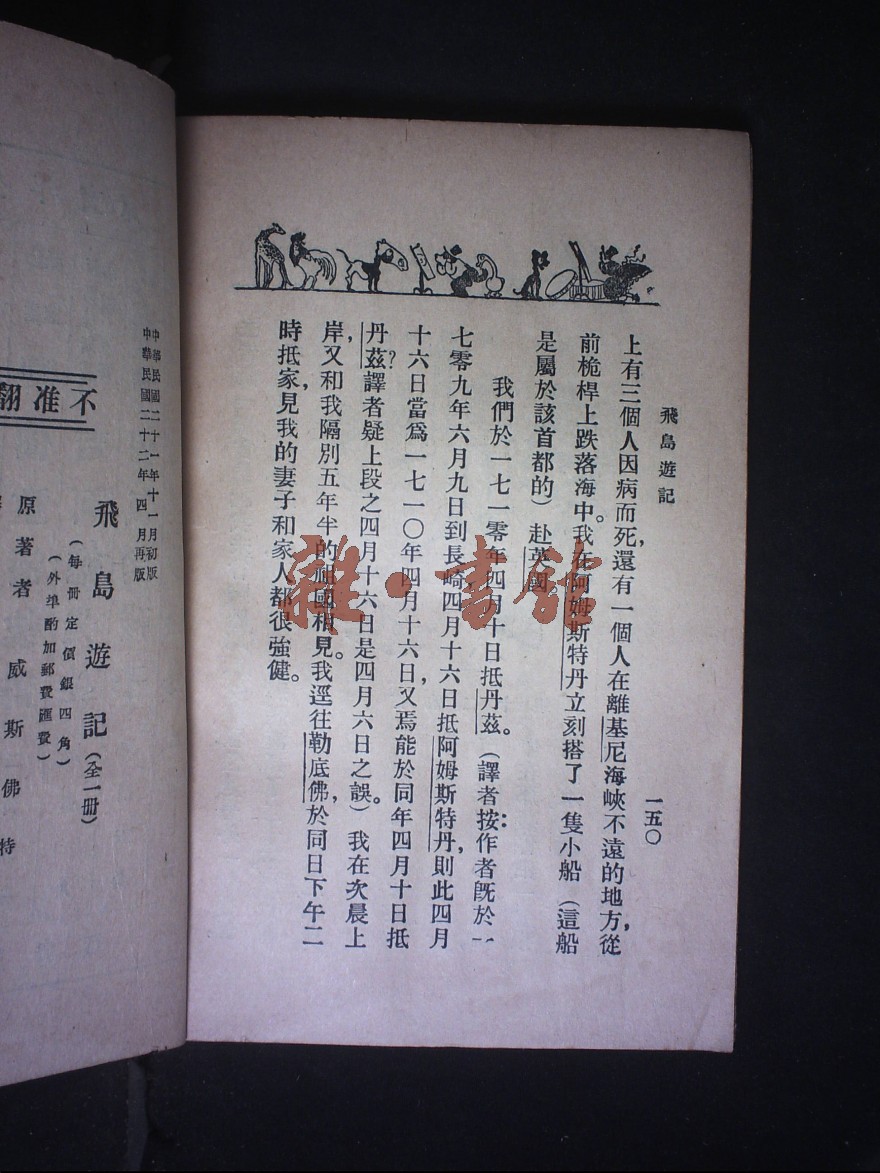 飛島遊記
一五〇
上有三個人因病而死,還有一個人在離基尼海峽不遠的地方,從
前桅桿上跌落海中。我在阿姆斯特丹立刻搭了一隻小船(這船
是屬於該首都的)赴英國。
我們於一七一零年四月十日抵丹茲。(譯者按:作者旣於一
七零九年六月九日到長崎,四月十六日抵阿姆斯特丹,則此四月
十六日當爲一七一〇年四月十六日,又焉能於同年四月十日抵
丹茲?譯者疑上段之四月十六日是四月六日之誤。)我在次晨上
岸,又和我隔別五年半的祖國相見。我逕往勒底佛,於同日下午二
時抵家,見我的妻子和家人都很強健。
雜·書館
中華民國二十一年十一月初版
中華民國二十二年四月再版
不准翻
飛島遊記(全一册)
(每册定價銀四角)
(外埠酌加郵費匯費)
原著者 威斯佛特